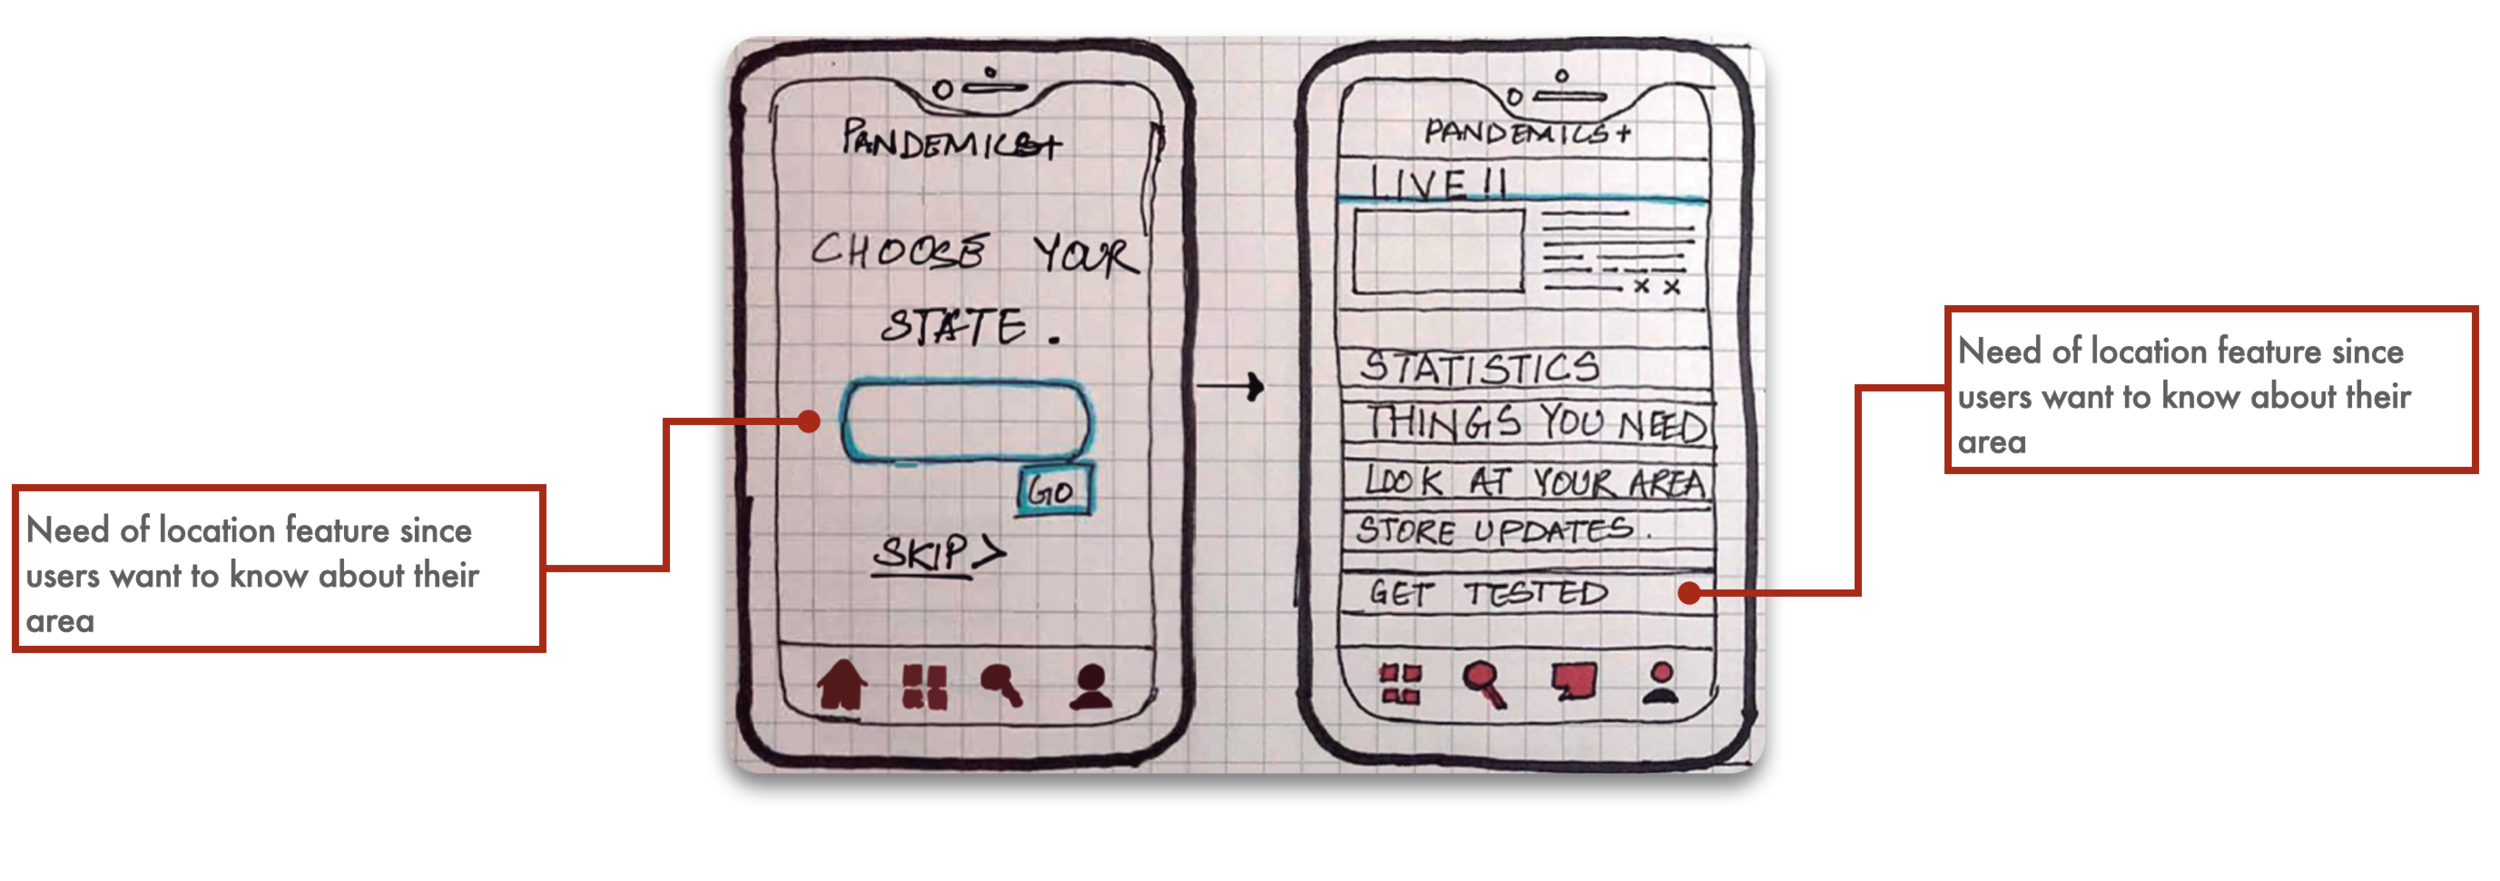 PANDEMICS+
CHOOSE YOUR
STATE.
GO
SKIP>
PANDEMICS+
LIVE!!
x x
STATISTICS
THINGS YOU NEED
LOOK AT YOUR AREA
STORE UPDATES.
GET TESTED
Need of location feature since
users want to know about their
area
Need of location feature since
users want to know about their
area